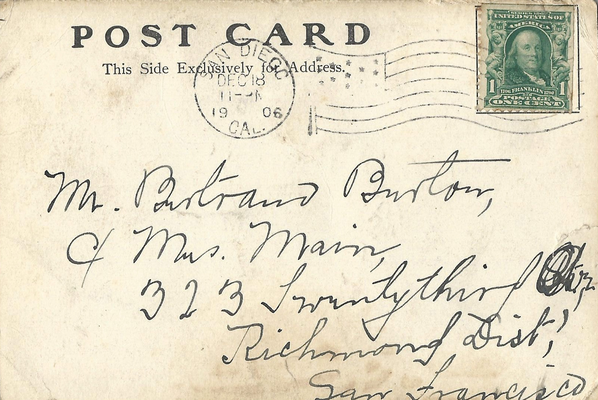 POST CARD
This Side Exclusively for Address.
SAN DIEGO
DEC 18
11
19 06
CAL.
SERIES 1902
UNITED STATES OF
AMERICA
1790 FRANKLIN 1790
1 POSTAGE 1
ONE CENT
Mr. Bertrand Burton,
c/ Mrs. Main,
323 Twentythird
Richmond Dist,
San Francisco